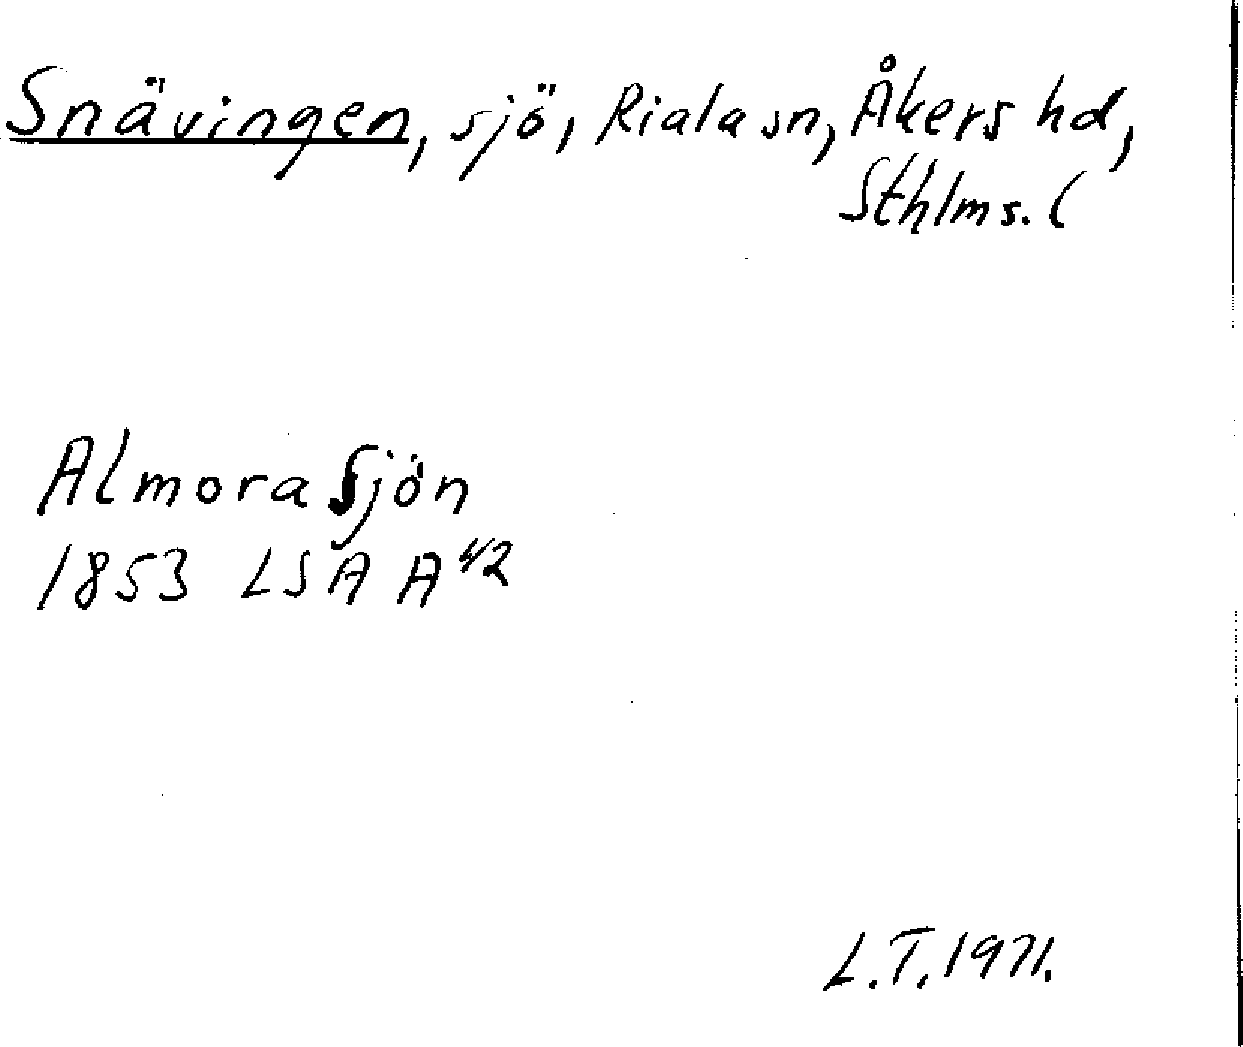 Snävingen, sjö, Riala sn, Åkers hd,
Sthlms. (
Almora Sjön
1853 LSA A 4/2
L.T. 1971.